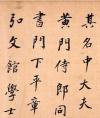 其名中大夫
黄門侍郎同
書門下平章
弘文館學士